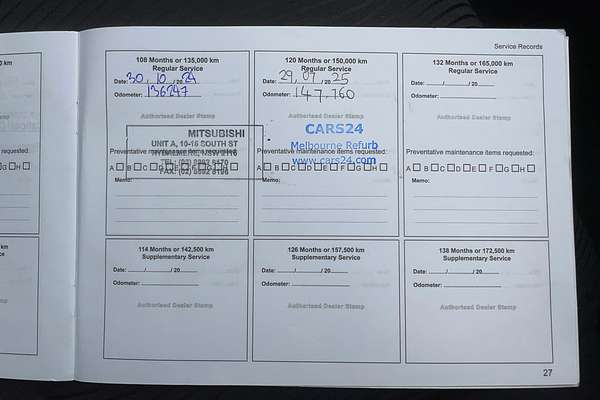 Service Records
108 Months or 135,000 km
Regular Service
Date: 30 / 10 / 20 24
Odometer: 136247
Authorised Dealer Stamp
MITSUBISHI
UNIT A, 10-16 SOUTH ST
Preventative maintenance items requested:
A B C D E F G H
Memo:
120 Months or 150,000 km
Regular Service
Date: 29, 09 / 20 25
Odometer: 147,760
Authorised Dealer Stamp
CARS24
Melbourne Refurb
Preventative maintenance items requested:
www.cars24.com
A B C D E F G H
Memo:
132 Months or 165,000 km
Regular Service
Date: / / 20
Odometer:
Authorised Dealer Stamp
Preventative maintenance items requested:
A B C D E F G H
Memo:
114 Months or 142,500 km
Supplementary Service
Date: / / 20
Odometer:
Authorised Dealer Stamp
126 Months or 157,500 km
Supplementary Service
Date: / / 20
Odometer:
Authorised Dealer Stamp
138 Months or 172,500 km
Supplementary Service
Date: / / 20
Odometer:
Authorised Dealer Stamp
27